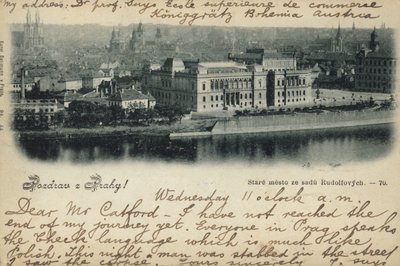 My adress: Dr prof. Ecole supérieure de commerce
Königgrätz Bohemia Austria
Pozdrav z Prahy!
Staré město ze sadů Rudolfových. — 70.
Wednesday 11 o'clock a.m.
Dear Mr Catford - I have not reached the
end of my journey yet. Everyone in Prag speaks
the Check language which is much like
Polish. This night a man was stabbed in the street
I saw the corpse. Yours sincerely